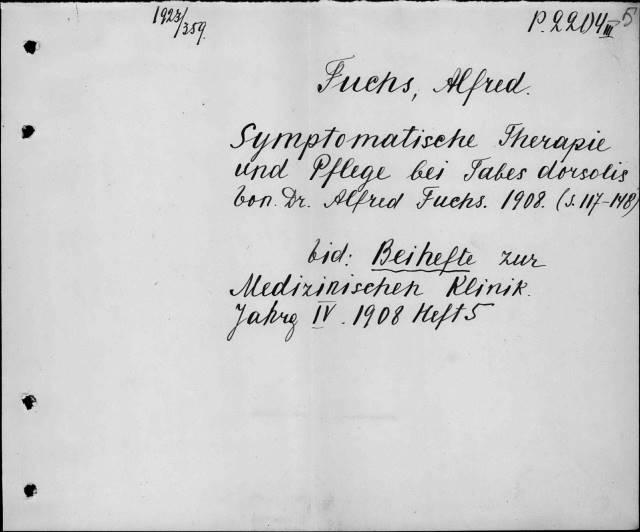 1923/359.
P. 2204 III 5
Fuchs, Alfred.
Symptomatische Therapie
und Pflege bei Tabes dorsolis
bon. Dr. Alfred Fuchs. 1908. (S. 117-148)
bid: Beihefte zur
Medizinischen Klinik.
Jahrg IV. 1908 Heft 5